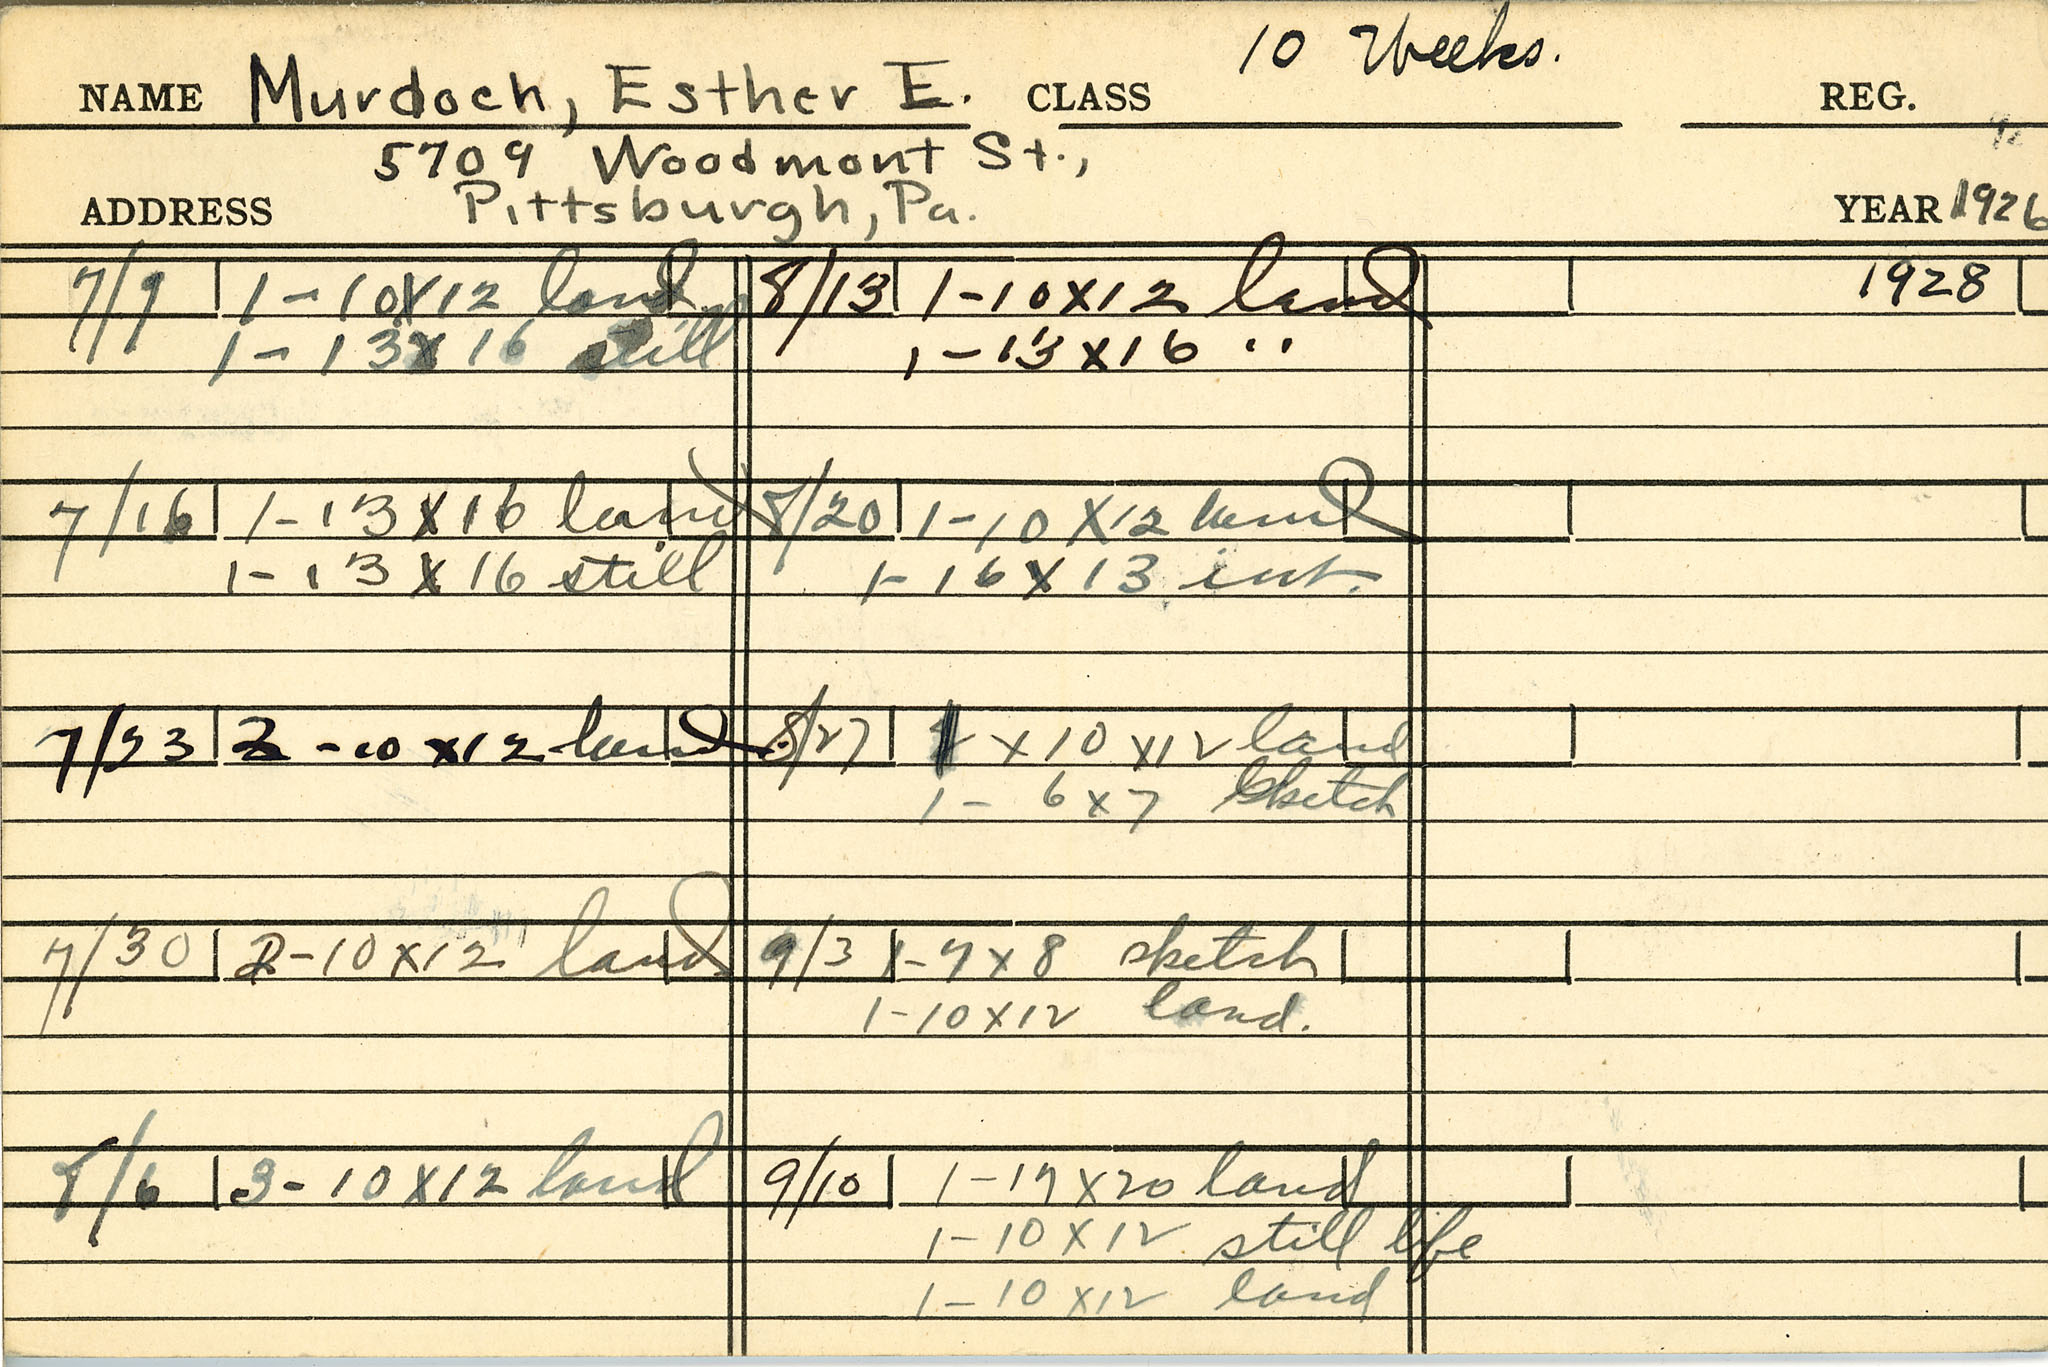 10 Weeks.
NAME Murdoch, Esther E. CLASS REG.
5709 Woodmont St.,
ADDRESS Pittsburgh, Pa. YEAR 1926
1928
7/9 1-10x12 land
1-13x16 still
7/16 1-13x16 land
1-13x16 still
7/23 2-10x12 land
7/30 2-10x12 land
8/6 3-10x12 land
8/13 1-10x12 land
1-13x16 ..
8/20 1-10x12 land
1-16x13 int.
8/27 1x10x12 land
1-6x7 sketch
9/3 1-7x8 sketch
1-10x12 land.
9/10 1-17x20 land
1-10x12 still life
1-10x12 land